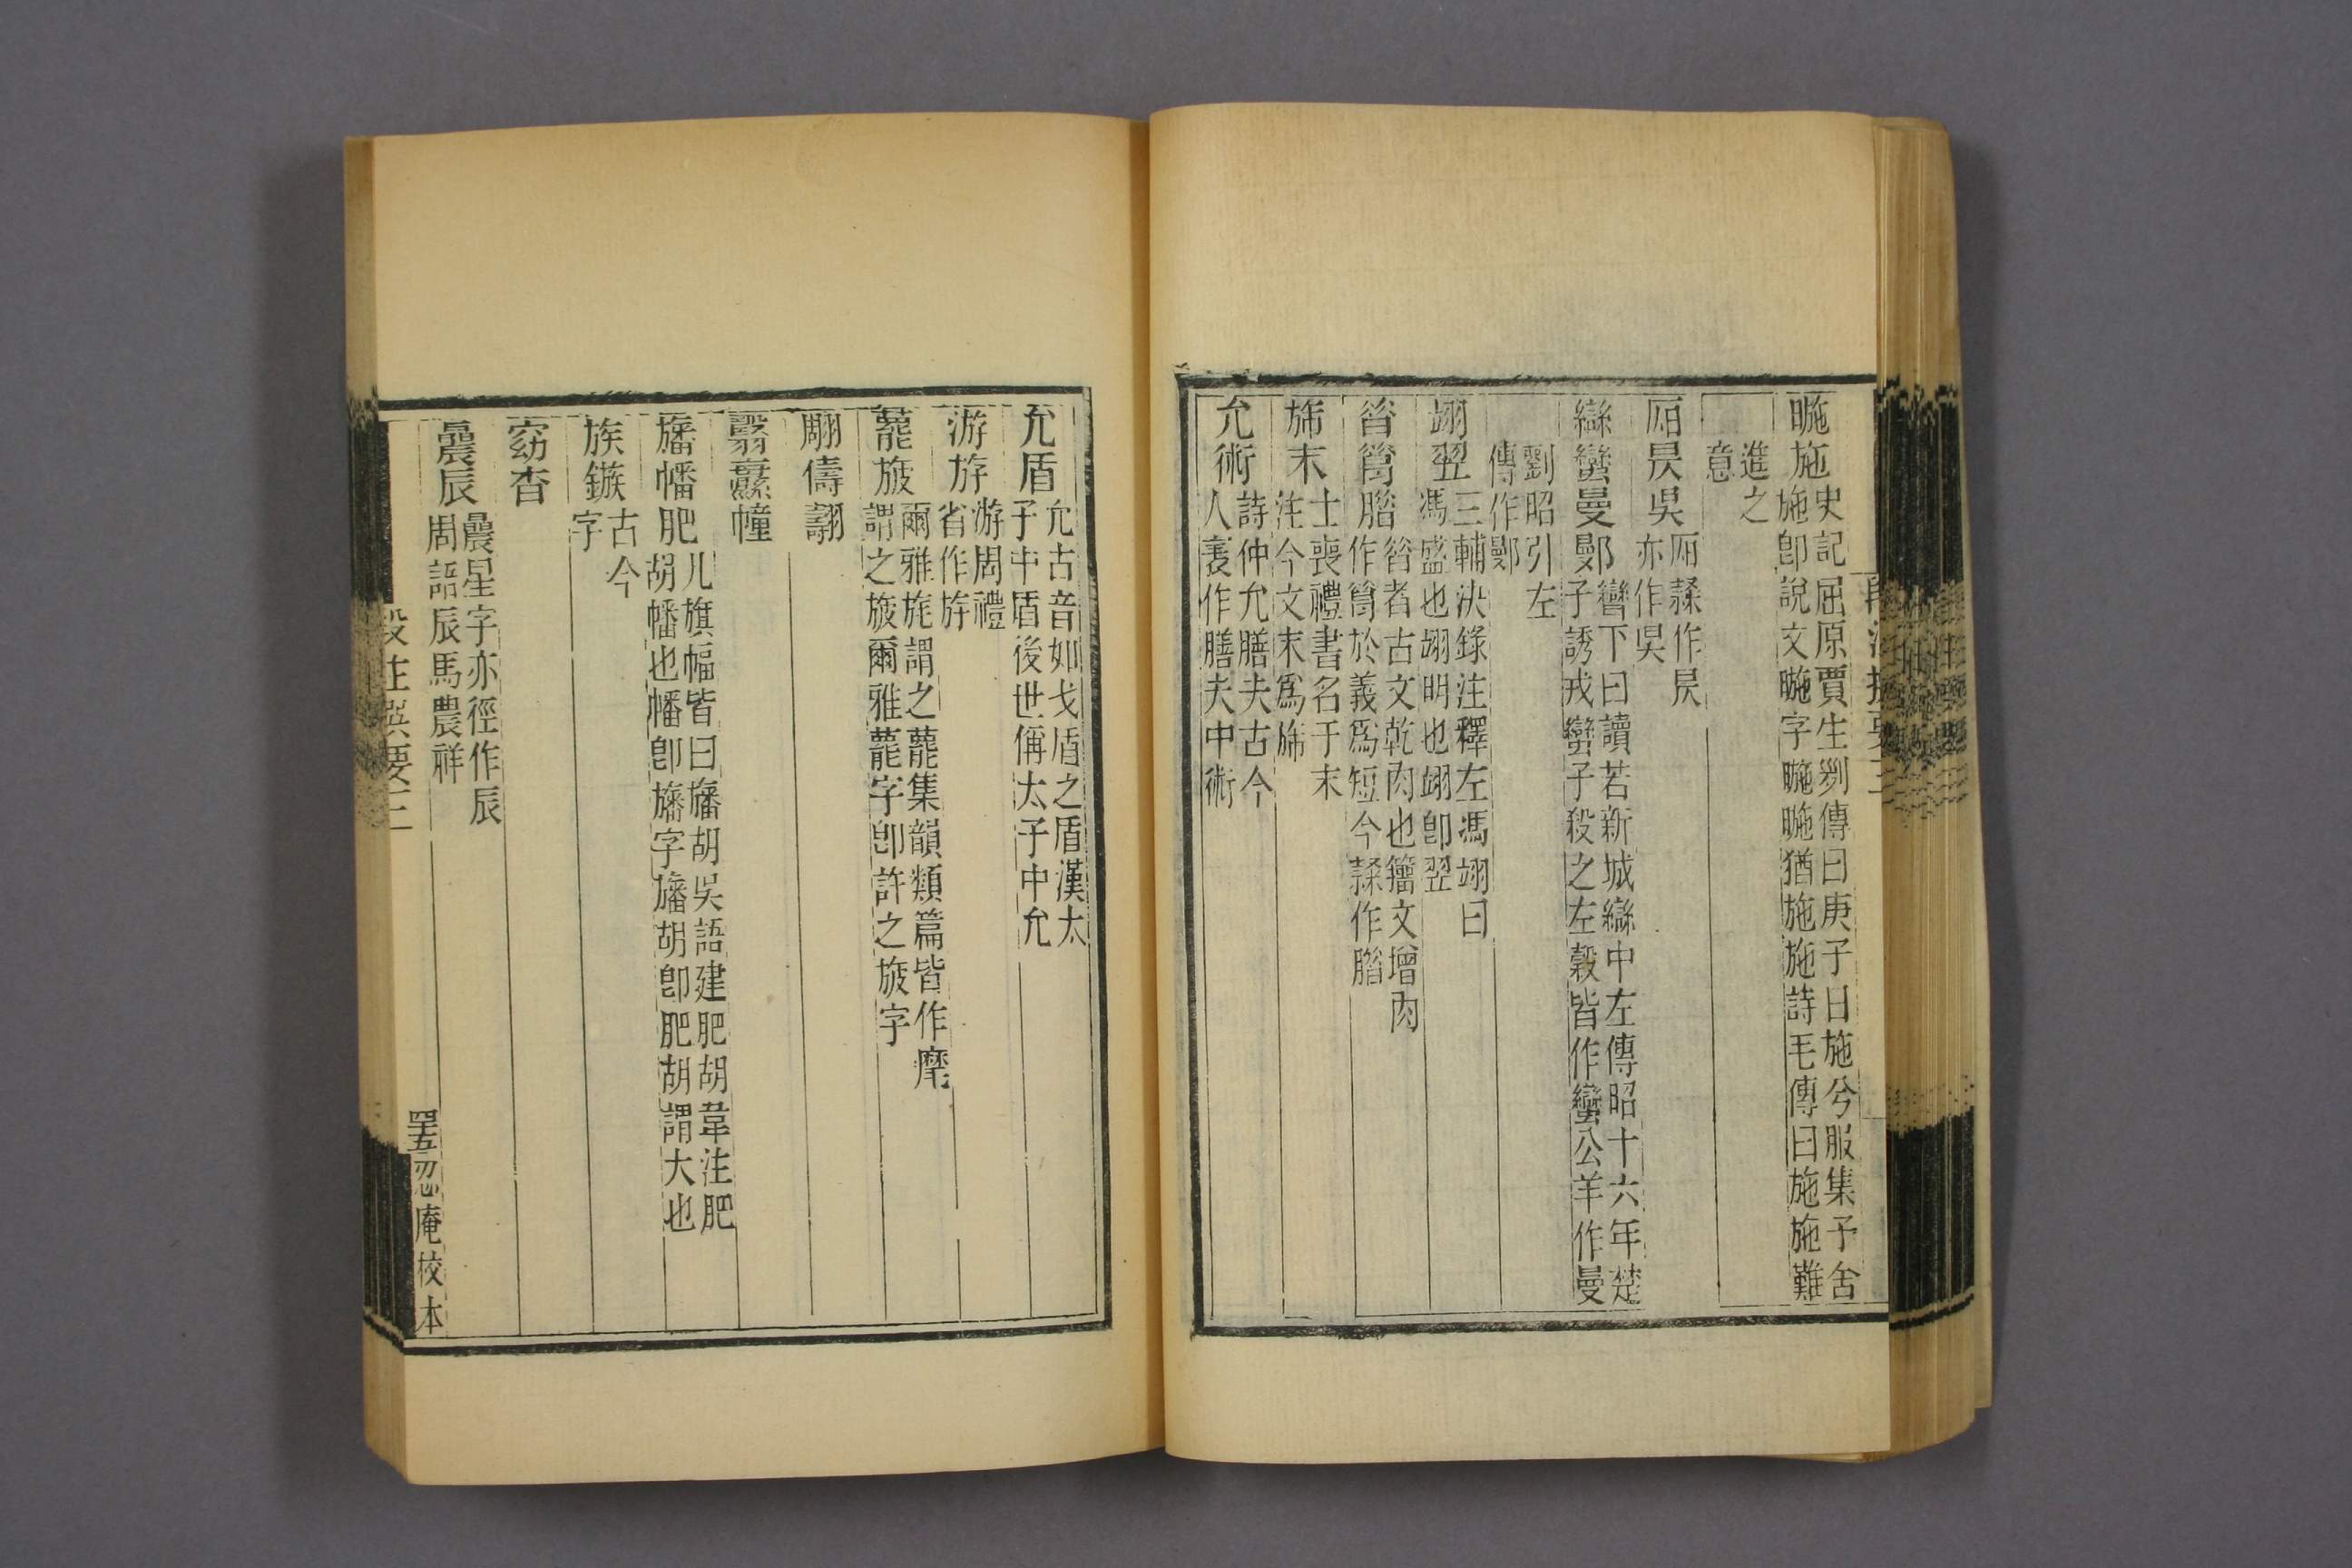 暆施史記屈原賈生列傳曰庚子日施兮服集予舍
施卽說文暆字暆暆猶施施詩毛傳曰施施難
進之
意
㫺昃吳㫺隸作昃
亦作吳
䜌蠻曼鄤䜌下曰讀若新城䜌中左傳昭十六年楚
子誘戎蠻子殺之左穀皆作蠻公羊作曼
劉昭引左
傳作鄤
翊翌三輔決錄注釋左馮翊曰
馮盛也翊明也翊卽翌
昔腊昔者古文乾肉也籀文增肉
於義爲短今隸作腊
旆末士喪禮書名于末
注今文末爲旆
允術詩仲允膳夫古今
人表作膳夫中術
允盾允古音如戈盾之盾漢太
子中盾後世偁太子中允
游斿游周禮
省作斿
蘢旇爾雅旄謂之蘢集韻類篇皆作䆀
謂之旇爾雅蘢字卽許之旇字
翢儔翿
翳纛幢
旛幡肥胡几旗幅皆曰旛胡吳語建肥胡韋注肥
胡幡也幡卽旛字旛胡卽肥胡謂大也
族鏃古今
字
窈杳
曟辰曟星字亦徑作辰
周語辰馬農祥
段注撰要三
四十五忍庵校本